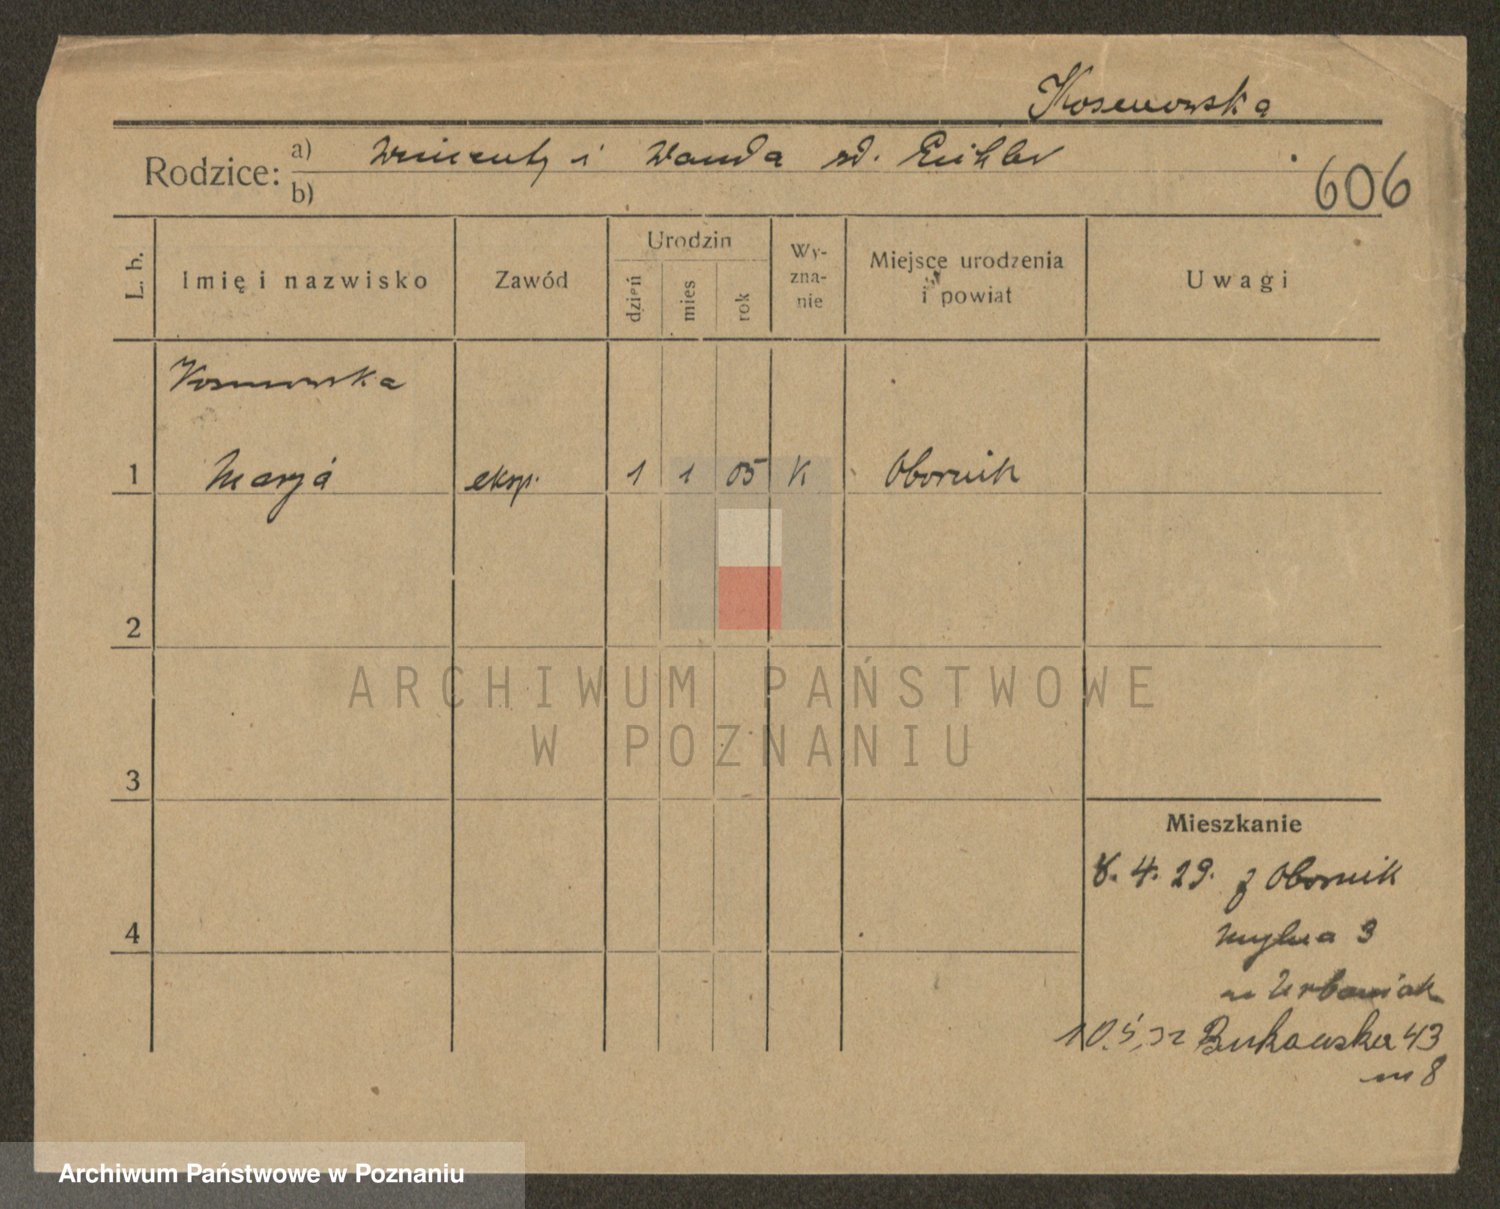 Kosmowska
Rodzice: a) Wincenty i Wanda zd. Eichler
b)
606
L. b.
Imię i nazwisko
Zawód
Urodzin
dzień
mies
rok
Wy-
zna-
nie
Miejsce urodzenia
i powiat
Uwagi
Kosmowska
1 Marja eksp. 1 1 05 K Obornik
2
3
4
Mieszkanie
8. 4. 29. z Obornik
Mylna 3
m Urbaniak
10.5.32 Bukowska 43
m 8
ARCHIWUM PAŃSTWOWE
W POZNANIU
Archiwum Państwowe w Poznaniu